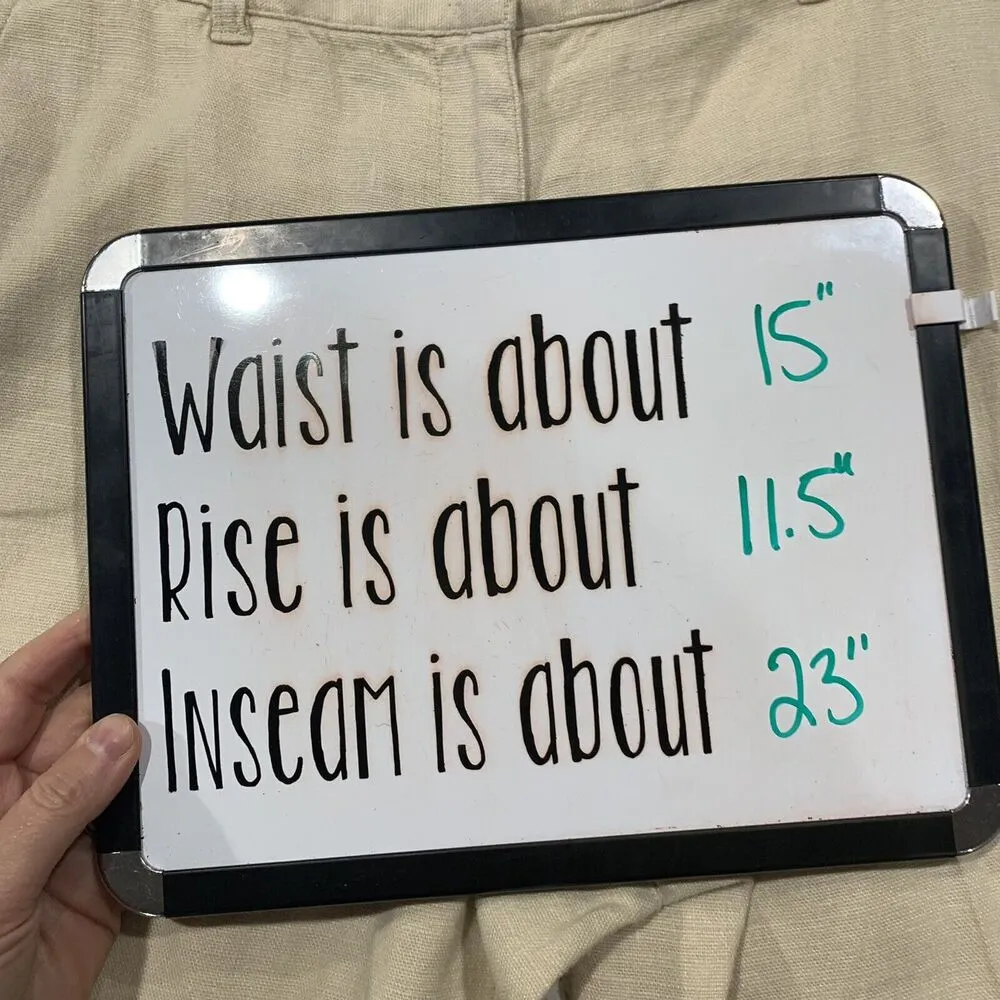 Waist is about 15"
Rise is about 11.5"
Inseam is about 23"